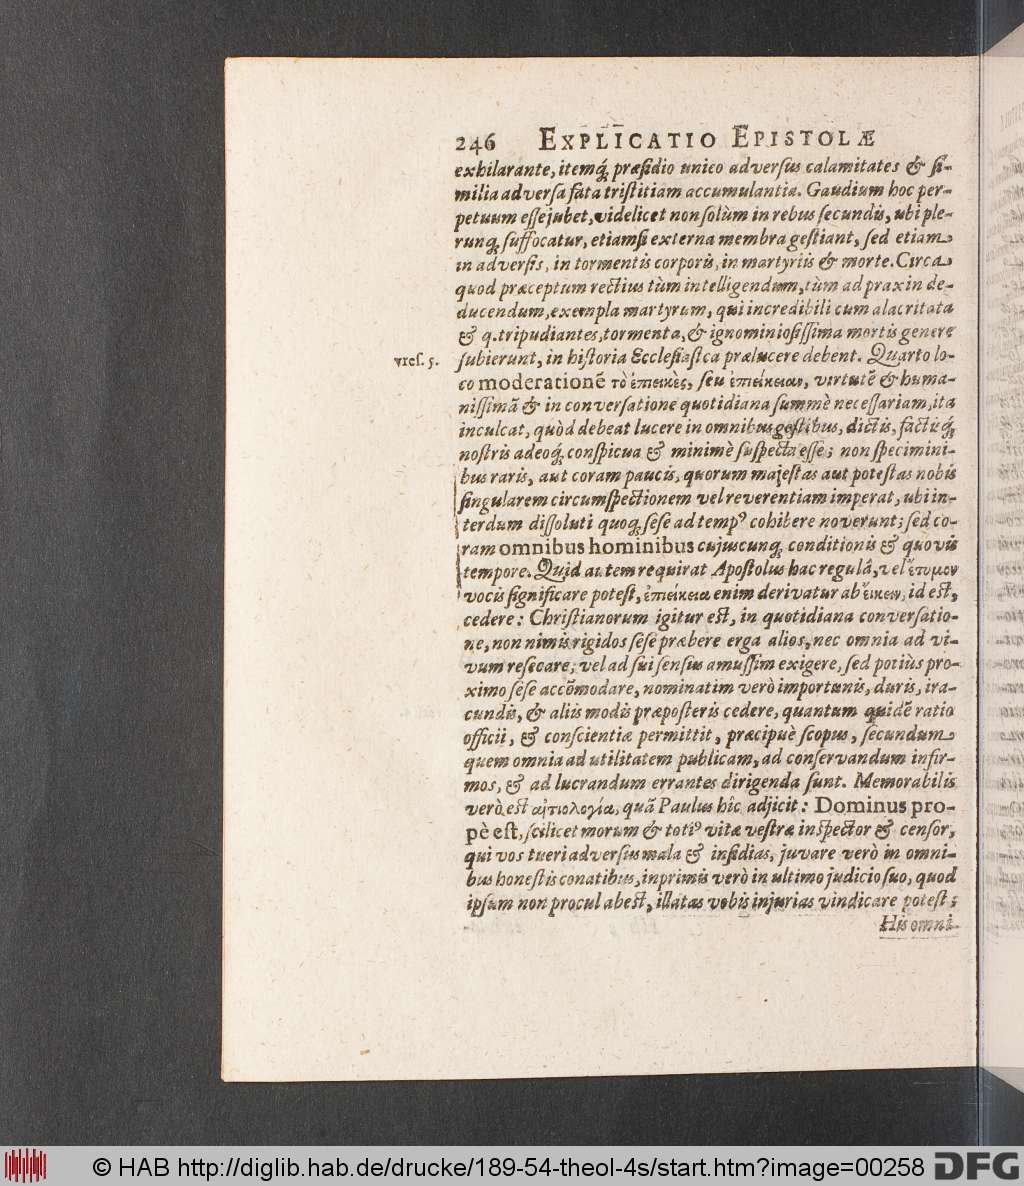 246 EXPLICATIO EPISTOLÆ
exhilarante, itemq́; præsidio unico adversus calamitates & si-
milia adversa fata tristitiam accumulantia. Gaudium hoc per-
petuum esse jubet, videlicet non solùm in rebus secundis, ubi ple-
runq; suffocatur, etiamsi externa membra gestiant, sed etiam
in adversis, in tormentis corporis, in martyriis & morte. Circa
quod præceptum rectius tùm intelligendum, tùm ad praxin de-
ducendum, exempla martyrum, qui incredibili cum alacritata
& q. tripudiantes, tormenta, & ignominiosissima mortis genere
subierunt, in historia Ecclesiastica prælucere debent. Quarto lo-
vres. 5.
co moderationẽ τὸ ἐπιεικὲς, seu ἐπιείκειαν, virtutẽ & huma-
nissimã & in conversatione quotidiana summè necessariam, ita
inculcat, quòd debeat lucere in omnibus gestibus, dictis, factisq́;
nostris adeoq́; conspicua & minimè suspecta esse; non specimini-
bus raris, aut coram paucis, quorum majestas aut potestas nobis
singularem circumspectionem vel reverentiam imperat, ubi in-
terdum dissoluti quoq; sese ad tempꝰ cohibere noverunt; sed co-
ram omnibus hominibus cujuscunq; conditionis & quovis
tempore. Quid autem requirat Apostolus hac regulâ, vel ἔτυμον
vocis significare potest, ἐπιείκεια enim derivatur ab εἴκειν, id est,
cedere: Christianorum igitur est, in quotidiana conversatio-
ne, non nimis rigidos sese præbere erga alios, nec omnia ad vi-
vum resecare, vel ad sui sensus amussim exigere, sed potiùs pro-
ximo sese accõmodare, nominatim verò importunis, duris, ira-
cundis, & aliis modis præposteris cedere, quantum quidẽ ratio
officii, & conscientiæ permittit, præcipuè scopus, secundum
quem omnia ad utilitatem publicam, ad conservandum infir-
mos, & ad lucrandum errantes dirigenda sunt. Memorabilis
verò est αἰτιολογία, quã Paulus hîc adjicit: Dominus pro-
pè est, scilicet morum & totiꝰ vitæ vestræ inspector & censor,
qui vos tueri adversus mala & insidias, juvare verò in omni-
bus honestis conatibus, inprimis verò in ultimo judicio suo, quod
ipsum non procul abest, illatas vobis injurias vindicare potest;
His omni-
© HAB http://diglib.hab.de/drucke/189-54-theol-4s/start.htm?image=00258 DFG